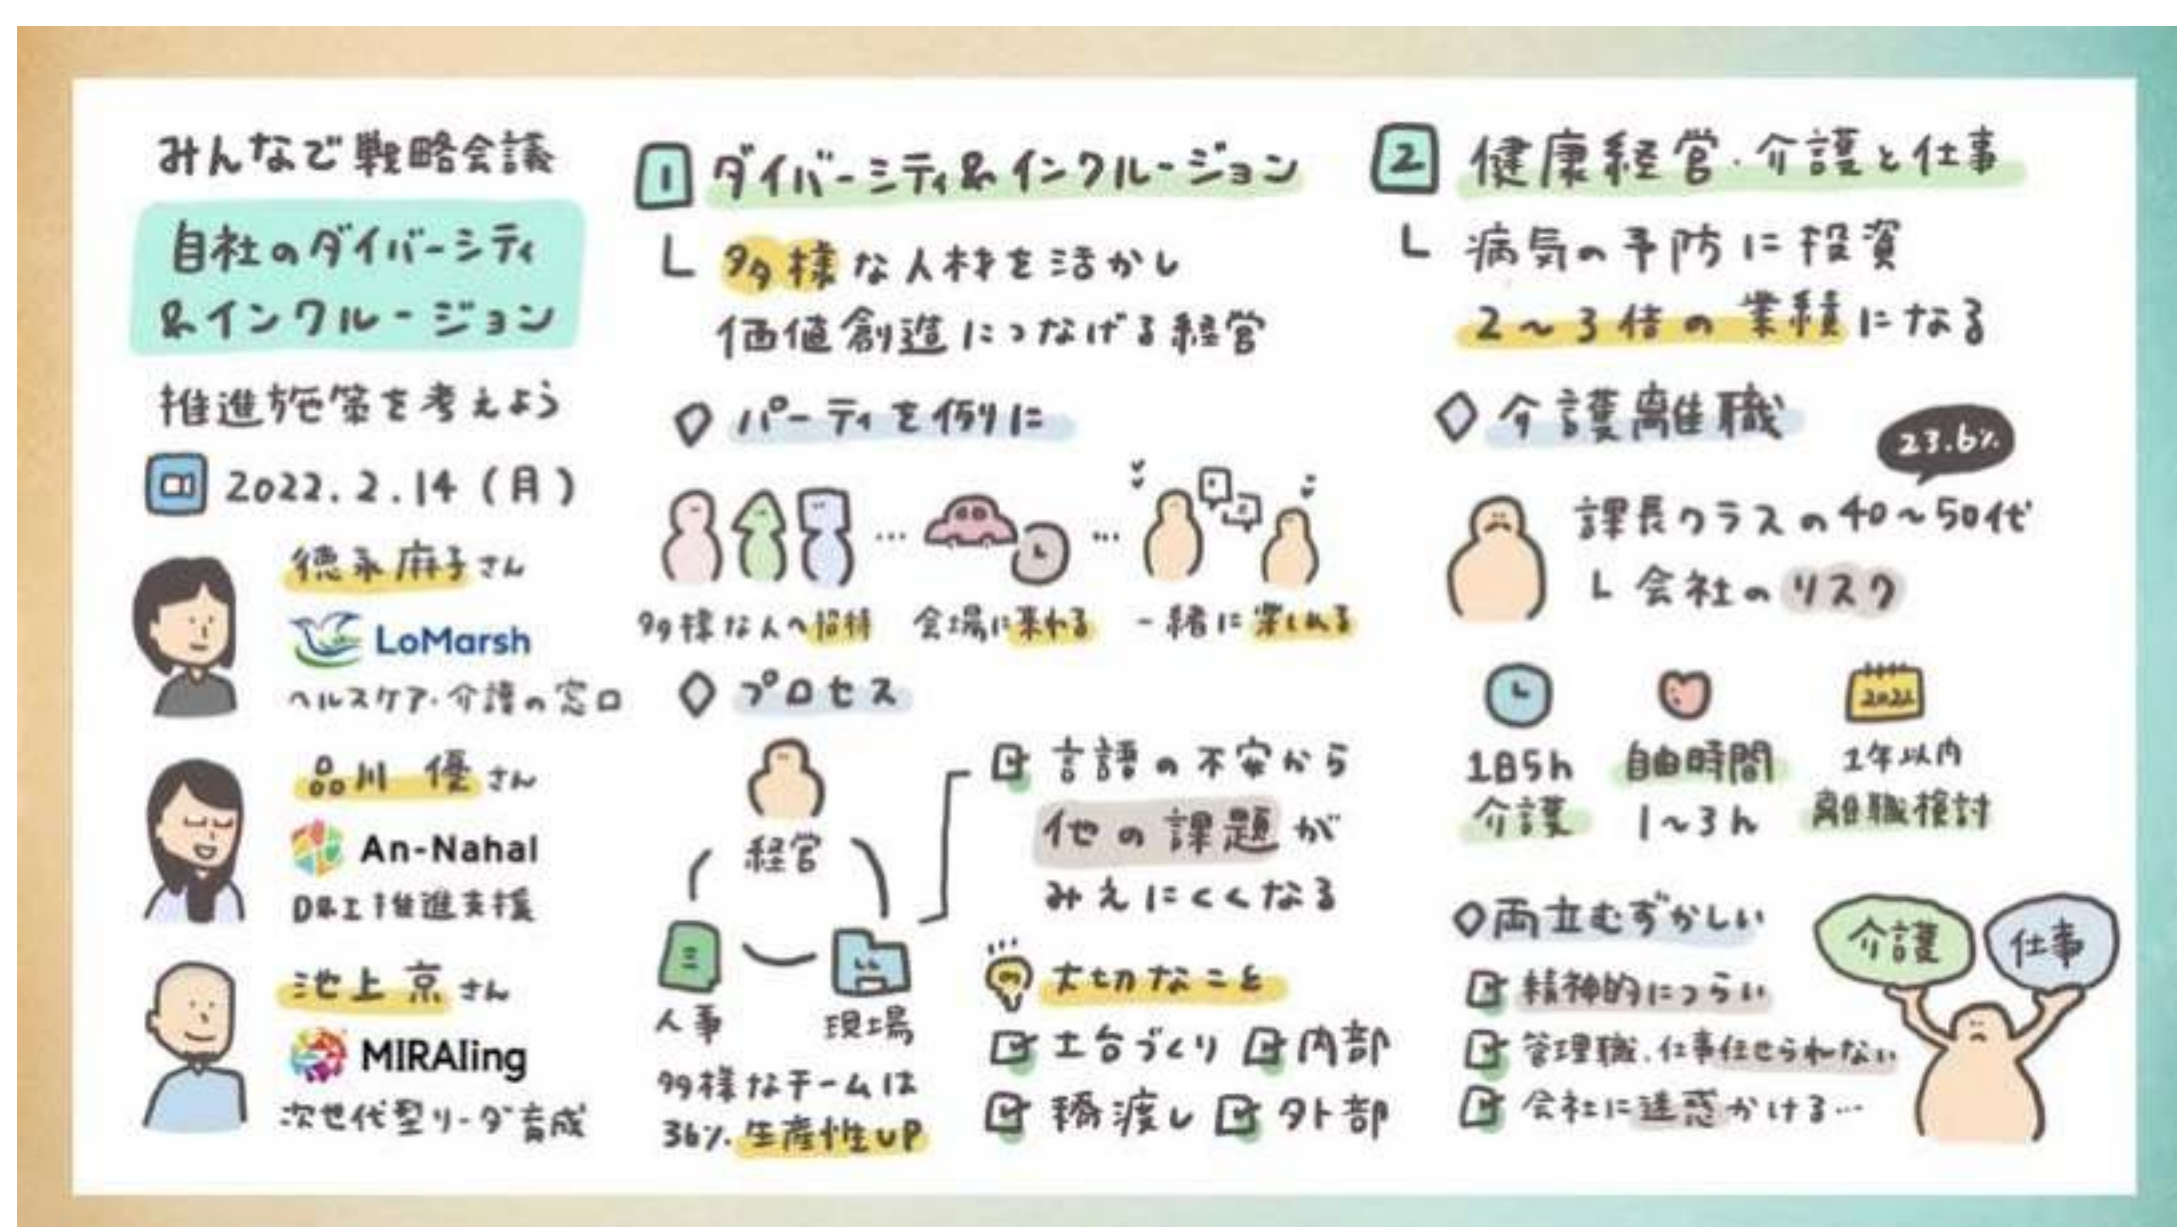 みんなで戦略会議
自社のダイバーシティ
&インクルージョン
推進施策を考えよう
2022.2.14(月)
徳永麻子さん
LoMarsh
ヘルスケア・介護の窓口
品川 優さん
An-Nahal
D&I推進支援
池上 京さん
MIRAIing
次世代型リーダ育成
1 ダイバーシティ&インクルージョン
多様な人材を活かし
価値創造につなげる経営
パーティを例に
... ...
多様な人へ招待 会場に来れる 一緒に楽しめる
プロセス
経営
人事 現場
多様なチームは
36%生産性UP
言語の不安から
他の課題が
みえにくくなる
大切なこと
土台づくり 内部
橋渡し 外部
2 健康経営・介護と仕事
病気の予防に投資
2〜3倍の業績になる
介護離職
23.6%
課長クラスの40〜50代
会社のリスク
2022
1日5h 自由時間 1年以内
介護 1〜3h 離職検討
両立むずかしい
介護 仕事
精神的につらい
管理職、仕事任せられない
会社に迷惑かける…